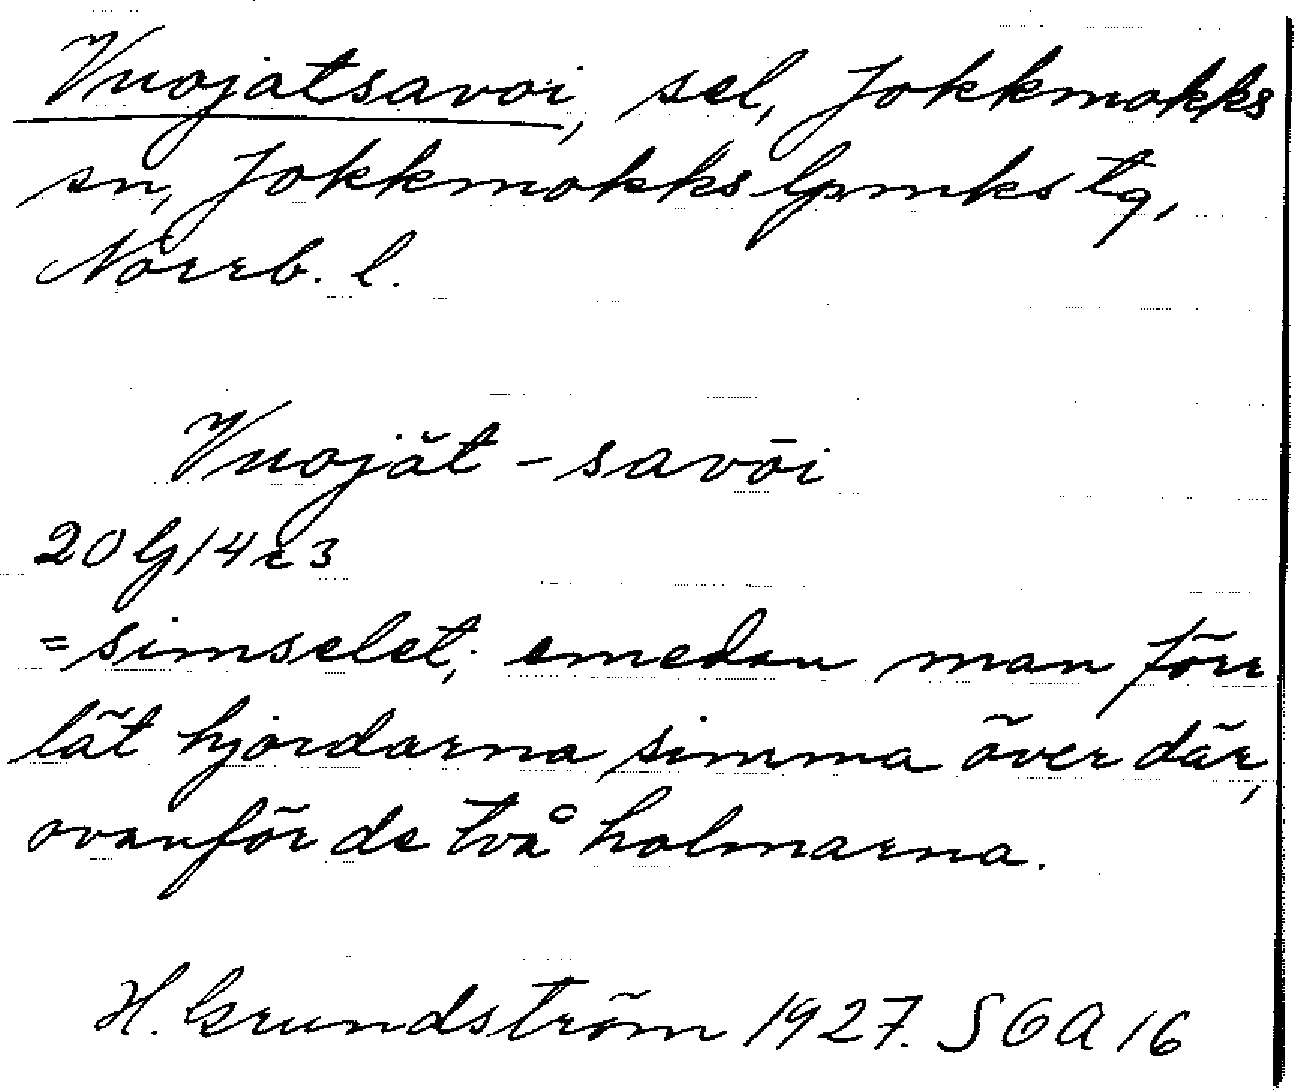 Vuojatsavoi, sel, Jokkmokks
sn, Jokkmokks lpmks tg,
Norrb. l.
Vuojăt - savōi
20 G/4 c 3
= simselet; emedan man förr
lät hjordarna simma över där,
ovanför de två holmarna.
H. Grundström 1927. SOA 16